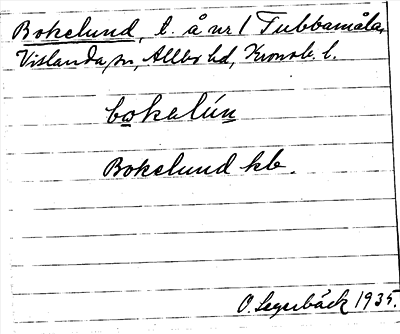 Bokelund, l. å nr 1 Tubbamåla,
Vislanda sn, Allbo hd, Kronob. l.
bokelún
Bokelund kb.
O. Segerbäck 1935.